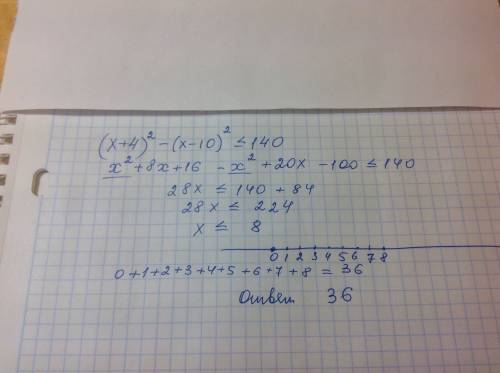 (x+4)² - (x-10)² ≤ 140
x² + 8x + 16 - x² + 20x - 100 ≤ 140
28x ≤ 140 + 84
28x ≤ 224
x ≤ 8
0 1 2 3 4 5 6 7 8
0+1+2+3+4+5+6+7+8 = 36
Ответ 36